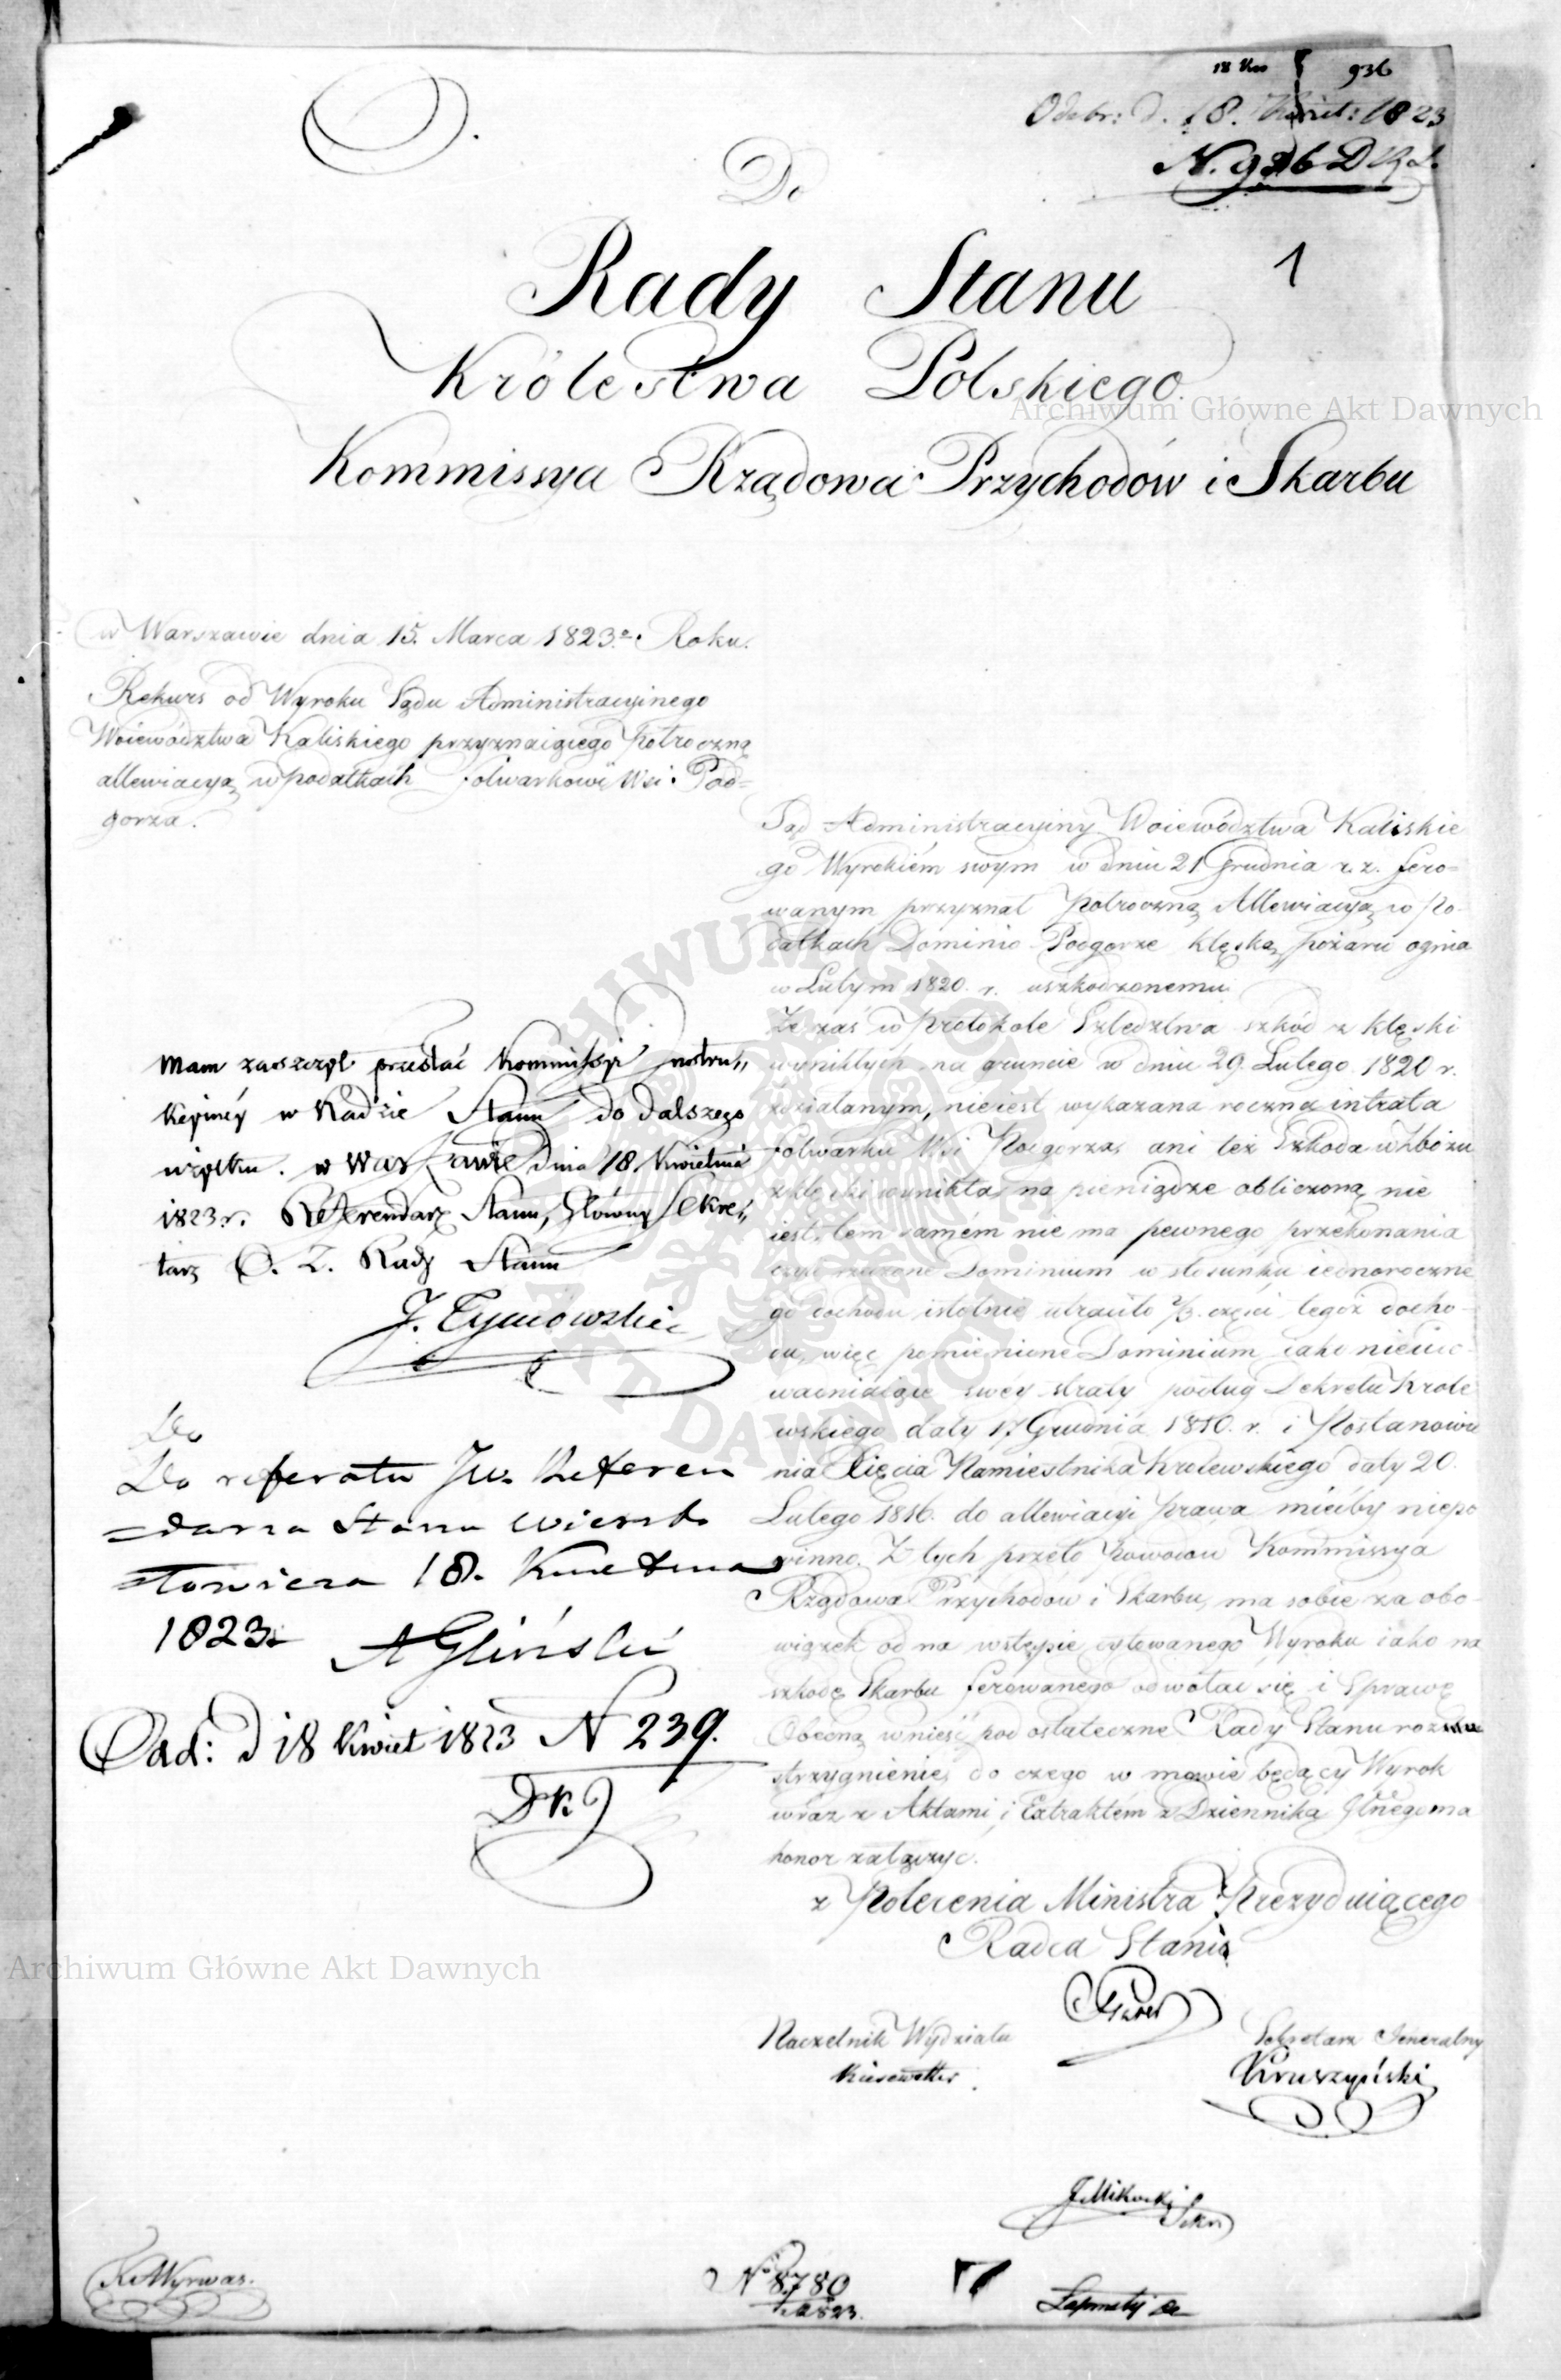 18 Kw 936
Odebr: d. 18. Kwiet: 1823
N. 936 D K J.
Do
Rady Stanu
1
Królestwa Polskiego.
Archiwum Główne Akt Dawnych
Kommissya Rządowa Przychodów i Skarbu
w Warszawie dnia 15. Marca 1823.o Roku.
Rekurs od Wyroku Sądu Administracyinego
Woiewództwa Kaliskiego przyznaiącego półroczną
allewiacyą w podatkach folwarkowi Wsi Pod=
gorza.
Sąd Administracyiny Woiewództwa Kaliskie
go Wyrokiem swym w dniu 21 Grudnia r. z. fero=
wanym przyznał półroczną Allewiacyą w Po-
datkach Dominio Podgorze klęską pożaru ognia
w Lutym 1820. r. uszkodzonemu.
Że zaś w Protokole Szledztwa szkód z klęski
wynikłych na gruncie w dniu 29. Lutego 1820 r.
zdziałanym, nieiest wykazana roczna intrata
folwarku Wsi Podgorza, ani też Szkoda w Zbożu
z klęski wynikła, na pieniądze obliczoną nie
iest, tem samém nie ma pewnego przekonania
czyli rzeczone Dominium w stosunku iednoroczne
go dochodu istotnie utraciło 2/3 części tegoż docho-
du, więc pomienione Dominium iako nieu
wadniaiące swéy straty podług Dekretu Króle
wskiego daty 17 Grudnia 1810. r. i Postanowie
nia Xięcia Namiestnika Królewskiego daty 20.
Lutego 1816. do allewiacyi prawa miećby niepo
winno. Z tych przeto powodów Kommissya
Rządowa Przychodów i Skarbu, ma sobie za obo-
wiązek od na wstępie cytowanego Wyroku iako na
szkodę Skarbu ferowanego odwołać się i Sprawę
Obecną wnieść pod ostateczne Rady Stanu roz
strzygnienie, do czego w mowie będący Wyrok
wraz z Aktami, i Extraktém z Dziennika Głnego ma
honor załączyć.
z Polecenia Ministra Prezyduiącego
Radca Stanu
Naczelnik Wydziału
Kiesewetter
Sekretarz Jeneralny
Kruszyński
Mam zaszczyt przesłać Kommissyi Instru,,
kcyinéy w Radzie Stanu do dalszego
użytku. w Warszawie dnia 18 Kwietnia
1823 r. Referendarz Stanu, Główny Sekre,,
tarz O. Z. Rady Stanu
J. Tymowski
Do
Do referatu JW. Referen
=darza Stanu Wierzb
1823 18. Kwietnia
A Gliński
Odd: d 18 Kwiet 1823 N 239.
D K J
Archiwum Główne Akt Dawnych
ARCHIWUM GŁÓWNE AKT DAWNYCH
K Wyrwas.
No 8780
1823.